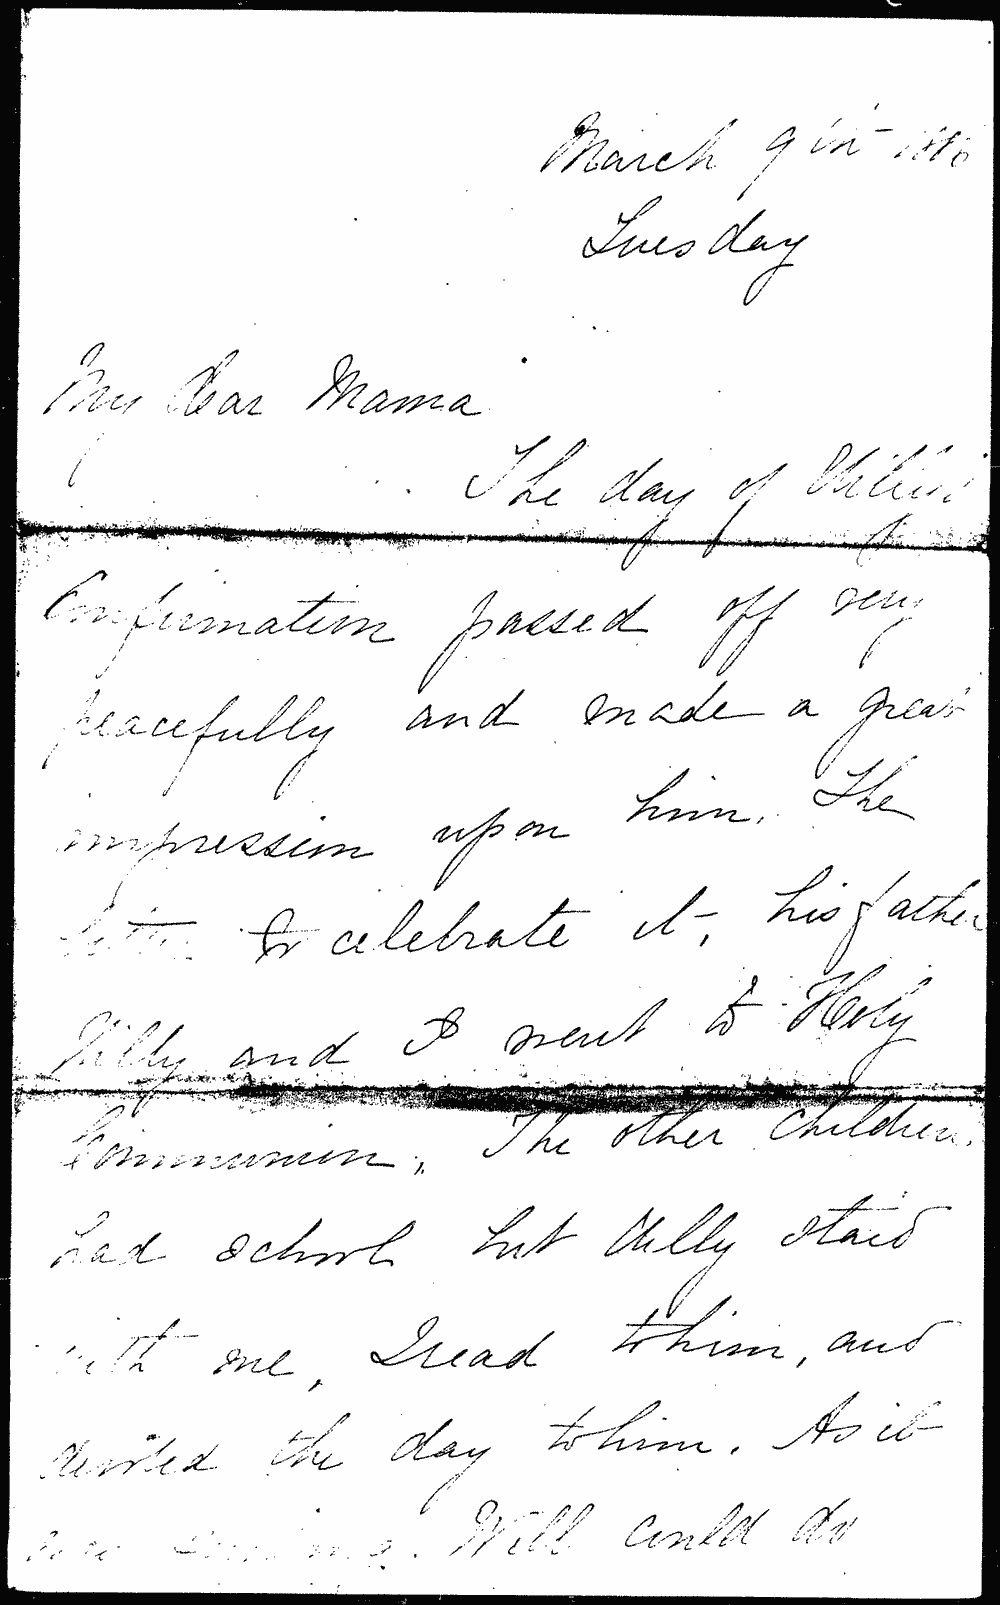 March 9th 1886
Tuesday
My dear Mama
The day of Willy's
Confirmation passed off very
peacefully and made a great
impression upon him. The
better to celebrate it, his father
Willy and I went to Holy
Communion, The other children
had school but Willy staid
with me, I read to him, and
devoted the day to him. As it
was Will could do